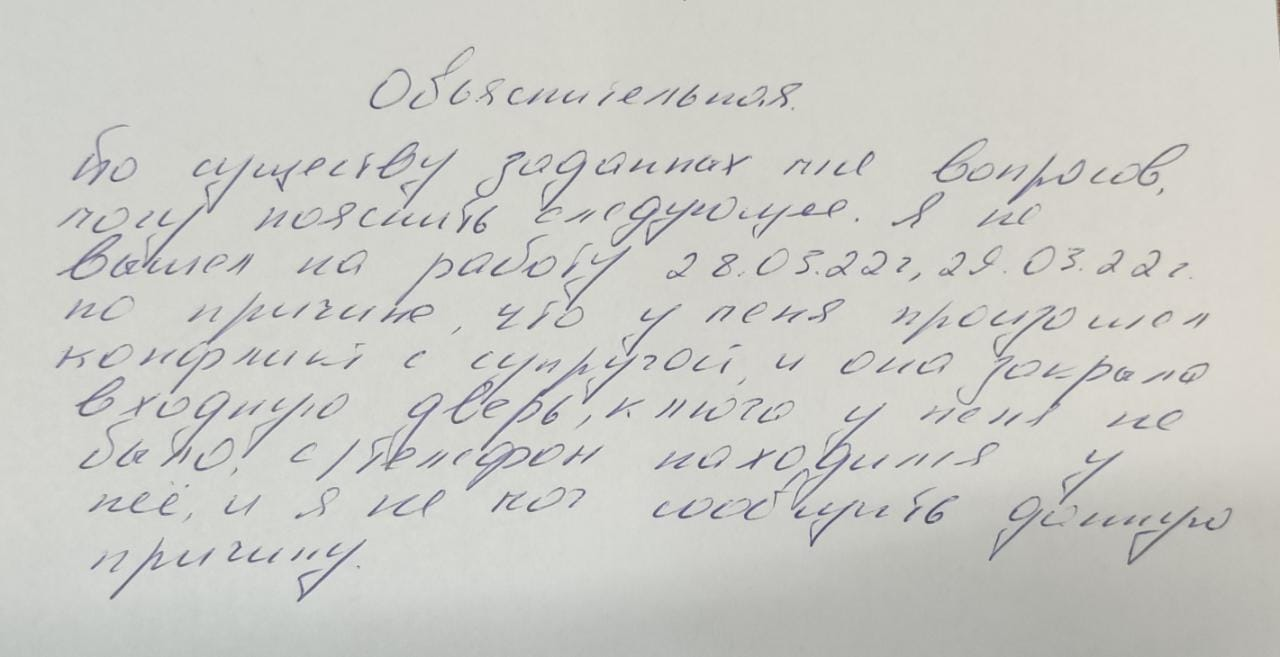 Объяснительная.
По существу заданных мне вопросов,
могу пояснить следующее. Я не
вышел на работу 28.03.22г, 29.03.22г.
по причине, что у меня произошел
конфликт с супругой, и она закрыла
входную дверь, ключа у меня не
было, с/телефон находился у
неё, и я не мог сообщить данную
причину.